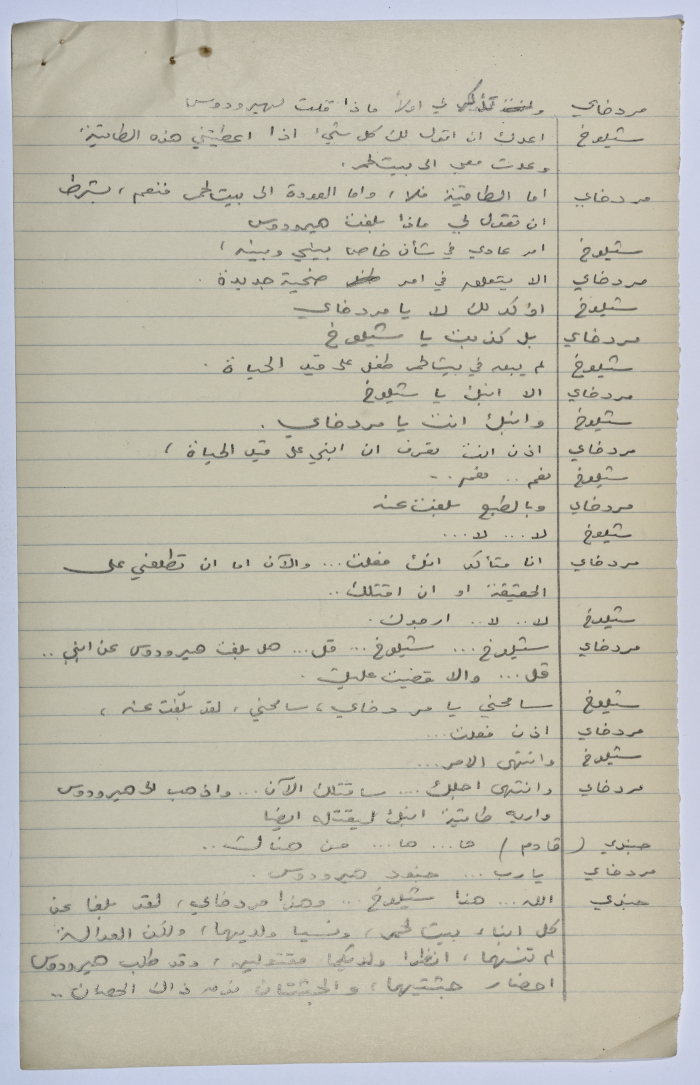 مردخاي ولكن تذكر لي اولاً ماذا قلت لهيرودوس
شيلوخ اعدك ان اقول لك كل شيء اذا اعطيتني هذه الطاقية
وعدت معي الى بيت لحم .
مردخاي اما الطاقية فلا ، واما العودة الى بيت لحم فنعم ، بشرط
ان تقول لي ماذا بلغت هيرودوس
شيلوخ امر عادي في شأن خاص بيني وبينه ،
مردخاي الا يتعلق في امر ضحية جديدة .
شيلوخ اؤكد لك لا يا مردخاي
مردخاي بل كذبت يا شيلوخ
شيلوخ لم يبق في بيت لحم طفل على قيد الحياة .
مردخاي الا ابنك يا شيلوخ
شيلوخ وابنك انت يا مردخاي .
مردخاي اذن انت تعرف ان ابني على قيد الحياة ،
شيلوخ نعم .. نعم ..
مردخاي وبالطبع بلغت عنه
شيلوخ لا ... لا ...
مردخاي انا متأكد انك فعلت ... والآن اما ان تطلعني على
الحقيقة او ان اقتلك ..
شيلوخ لا .. لا .. ارجوك .
مردخاي شيلوخ ... شيلوخ ... قل ... هل بلغت هيرودوس عن ابني ..
قل ... والا قضيت عليك .
شيلوخ سامحني يا مردخاي ، سامحني ، لقد بلّغت عنه ،
مردخاي اذن فعلت ...
شيلوخ وانتهى الامر ...
مردخاي وانتهى اجلك ... ساقتلك الآن ... واذهب الى هيرودوس
واريه طاقية ابنك ليقتله ايضا
جندي ( قادم ) ها ... ها ... من هناك ..
مردخاي يا رب ... جنود هيرودوس .
جندي الله ... هذا شيلوخ ... وهذا مردخاي ، لقد بلغا عن
كل ابناء بيت لحم ، ونسيا ولديهما ، ولكن العدالة
لم تنسهما ، انظرا ولديكما مقتولين ، وقد طلب هيرودوس
احضار جثتيهما ، والجثتان فوق ذاك الحصان ..